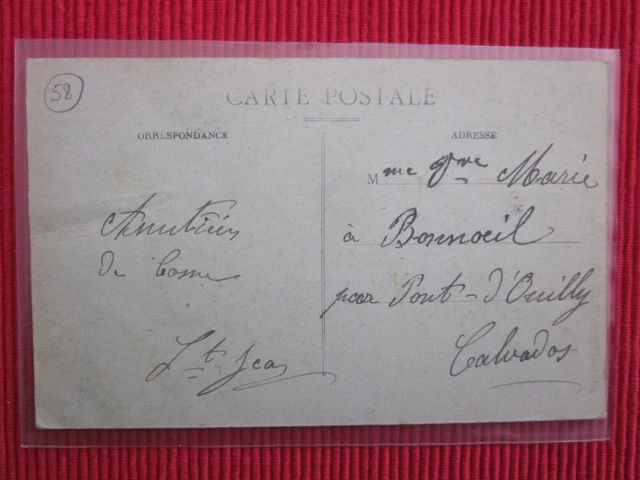 58
CARTE POSTALE
ORRESPONDANCE
ADRESSE
Mme Vve Marie
à Bonnoeil
par Pont-d'Ouilly
Calvados
Amitiés
de Cosne
St Jean